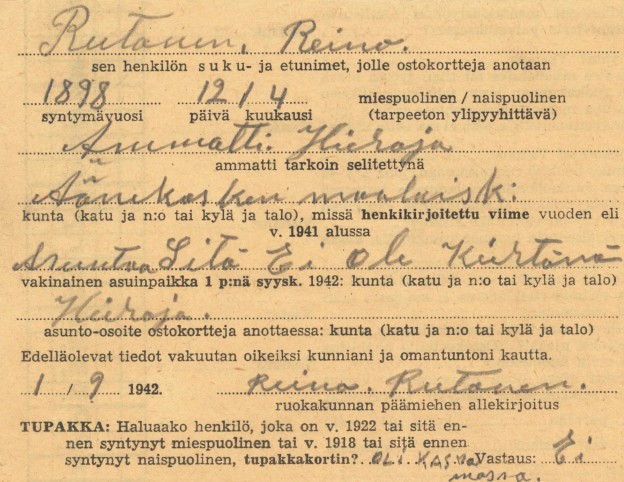 Rutanen, Reino.
sen henkilön suku- ja etunimet, jolle ostokortteja anotaan
1898 12 / 4 miespuolinen / naispuolinen
syntymävuosi päivä kuukausi (tarpeeton ylipyyhittävä)
Ammatti. Hieroja
ammatti tarkoin selitettynä
Äänekosken maalaisk:
kunta (katu ja n:o tai kylä ja talo), missä henkikirjoitettu viime vuoden eli
v. 1941 alussa
Asuntoa Sitä Ei Ole Kiertävä
vakinainen asuinpaikka 1 p:nä syysk. 1942: kunta (katu ja n:o tai kylä ja talo)
Hieroja.
asunto-osoite ostokortteja anottaessa: kunta (katu ja n:o tai kylä ja talo)
Edelläolevat tiedot vakuutan oikeiksi kunniani ja omantuntoni kautta.
1 / 9 1942. Reino. Rutanen.
ruokakunnan päämiehen allekirjoitus
TUPAKKA: Haluaako henkilö, joka on v. 1922 tai sitä en-
nen syntynyt miespuolinen tai v. 1918 tai sitä ennen
syntynyt naispuolinen, tupakkakortin? Vastaus: Ei